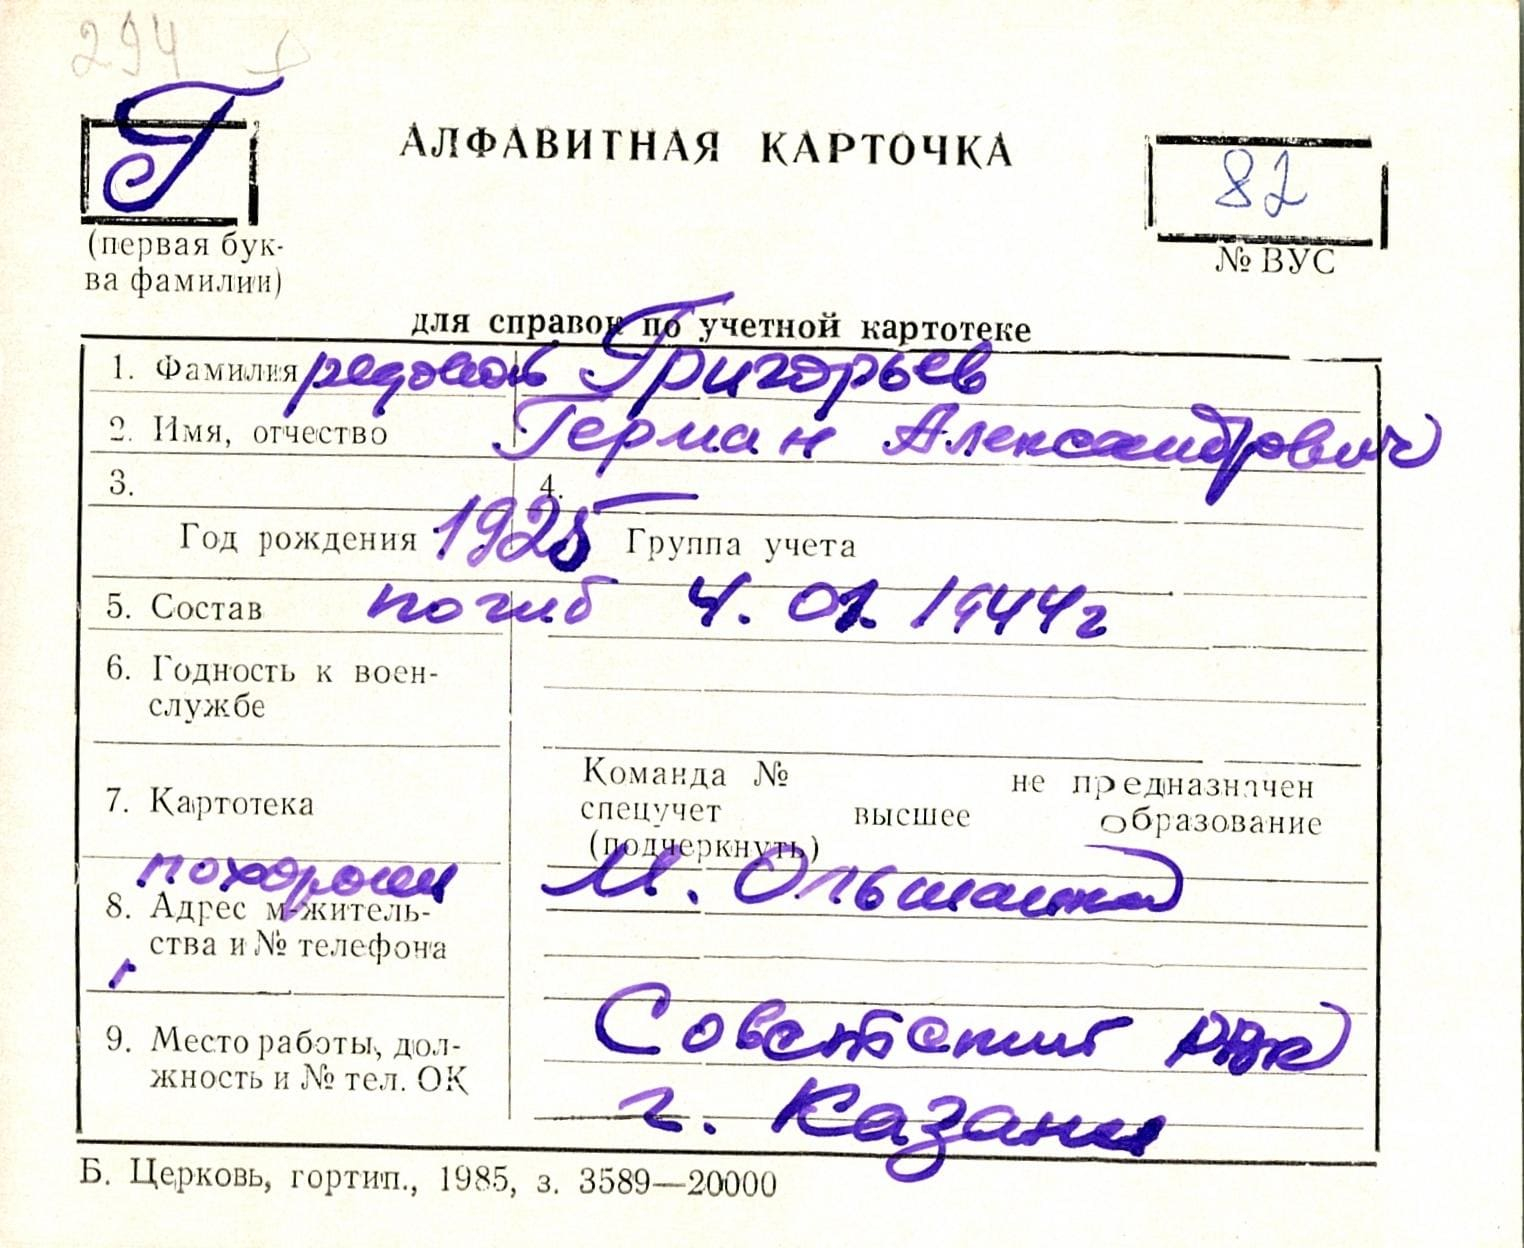 294
Г
АЛФАВИТНАЯ КАРТОЧКА
82
(первая бук-
ва фамилии)
№ ВУС
для справок по учетной картотеке
1. Фамилия рядовой Григорьев
2. Имя, отчество Герман Александрович
3. 4.
Год рождения 1925 Группа учета
5. Состав погиб 4. 01. 1944г
6. Годность к воен-
службе
Команда № не предназначен
7. Картотека
спецучет высшее образование
(подчеркнуть)
похоронен м. Ольшаница
8. Адрес м-житель-
ства и № телефона
Советский РВК
9. Место работы, дол-
жность и № тел. ОК
г. Казани
Б. Церковь, гортип., 1985, з. 3589—20000